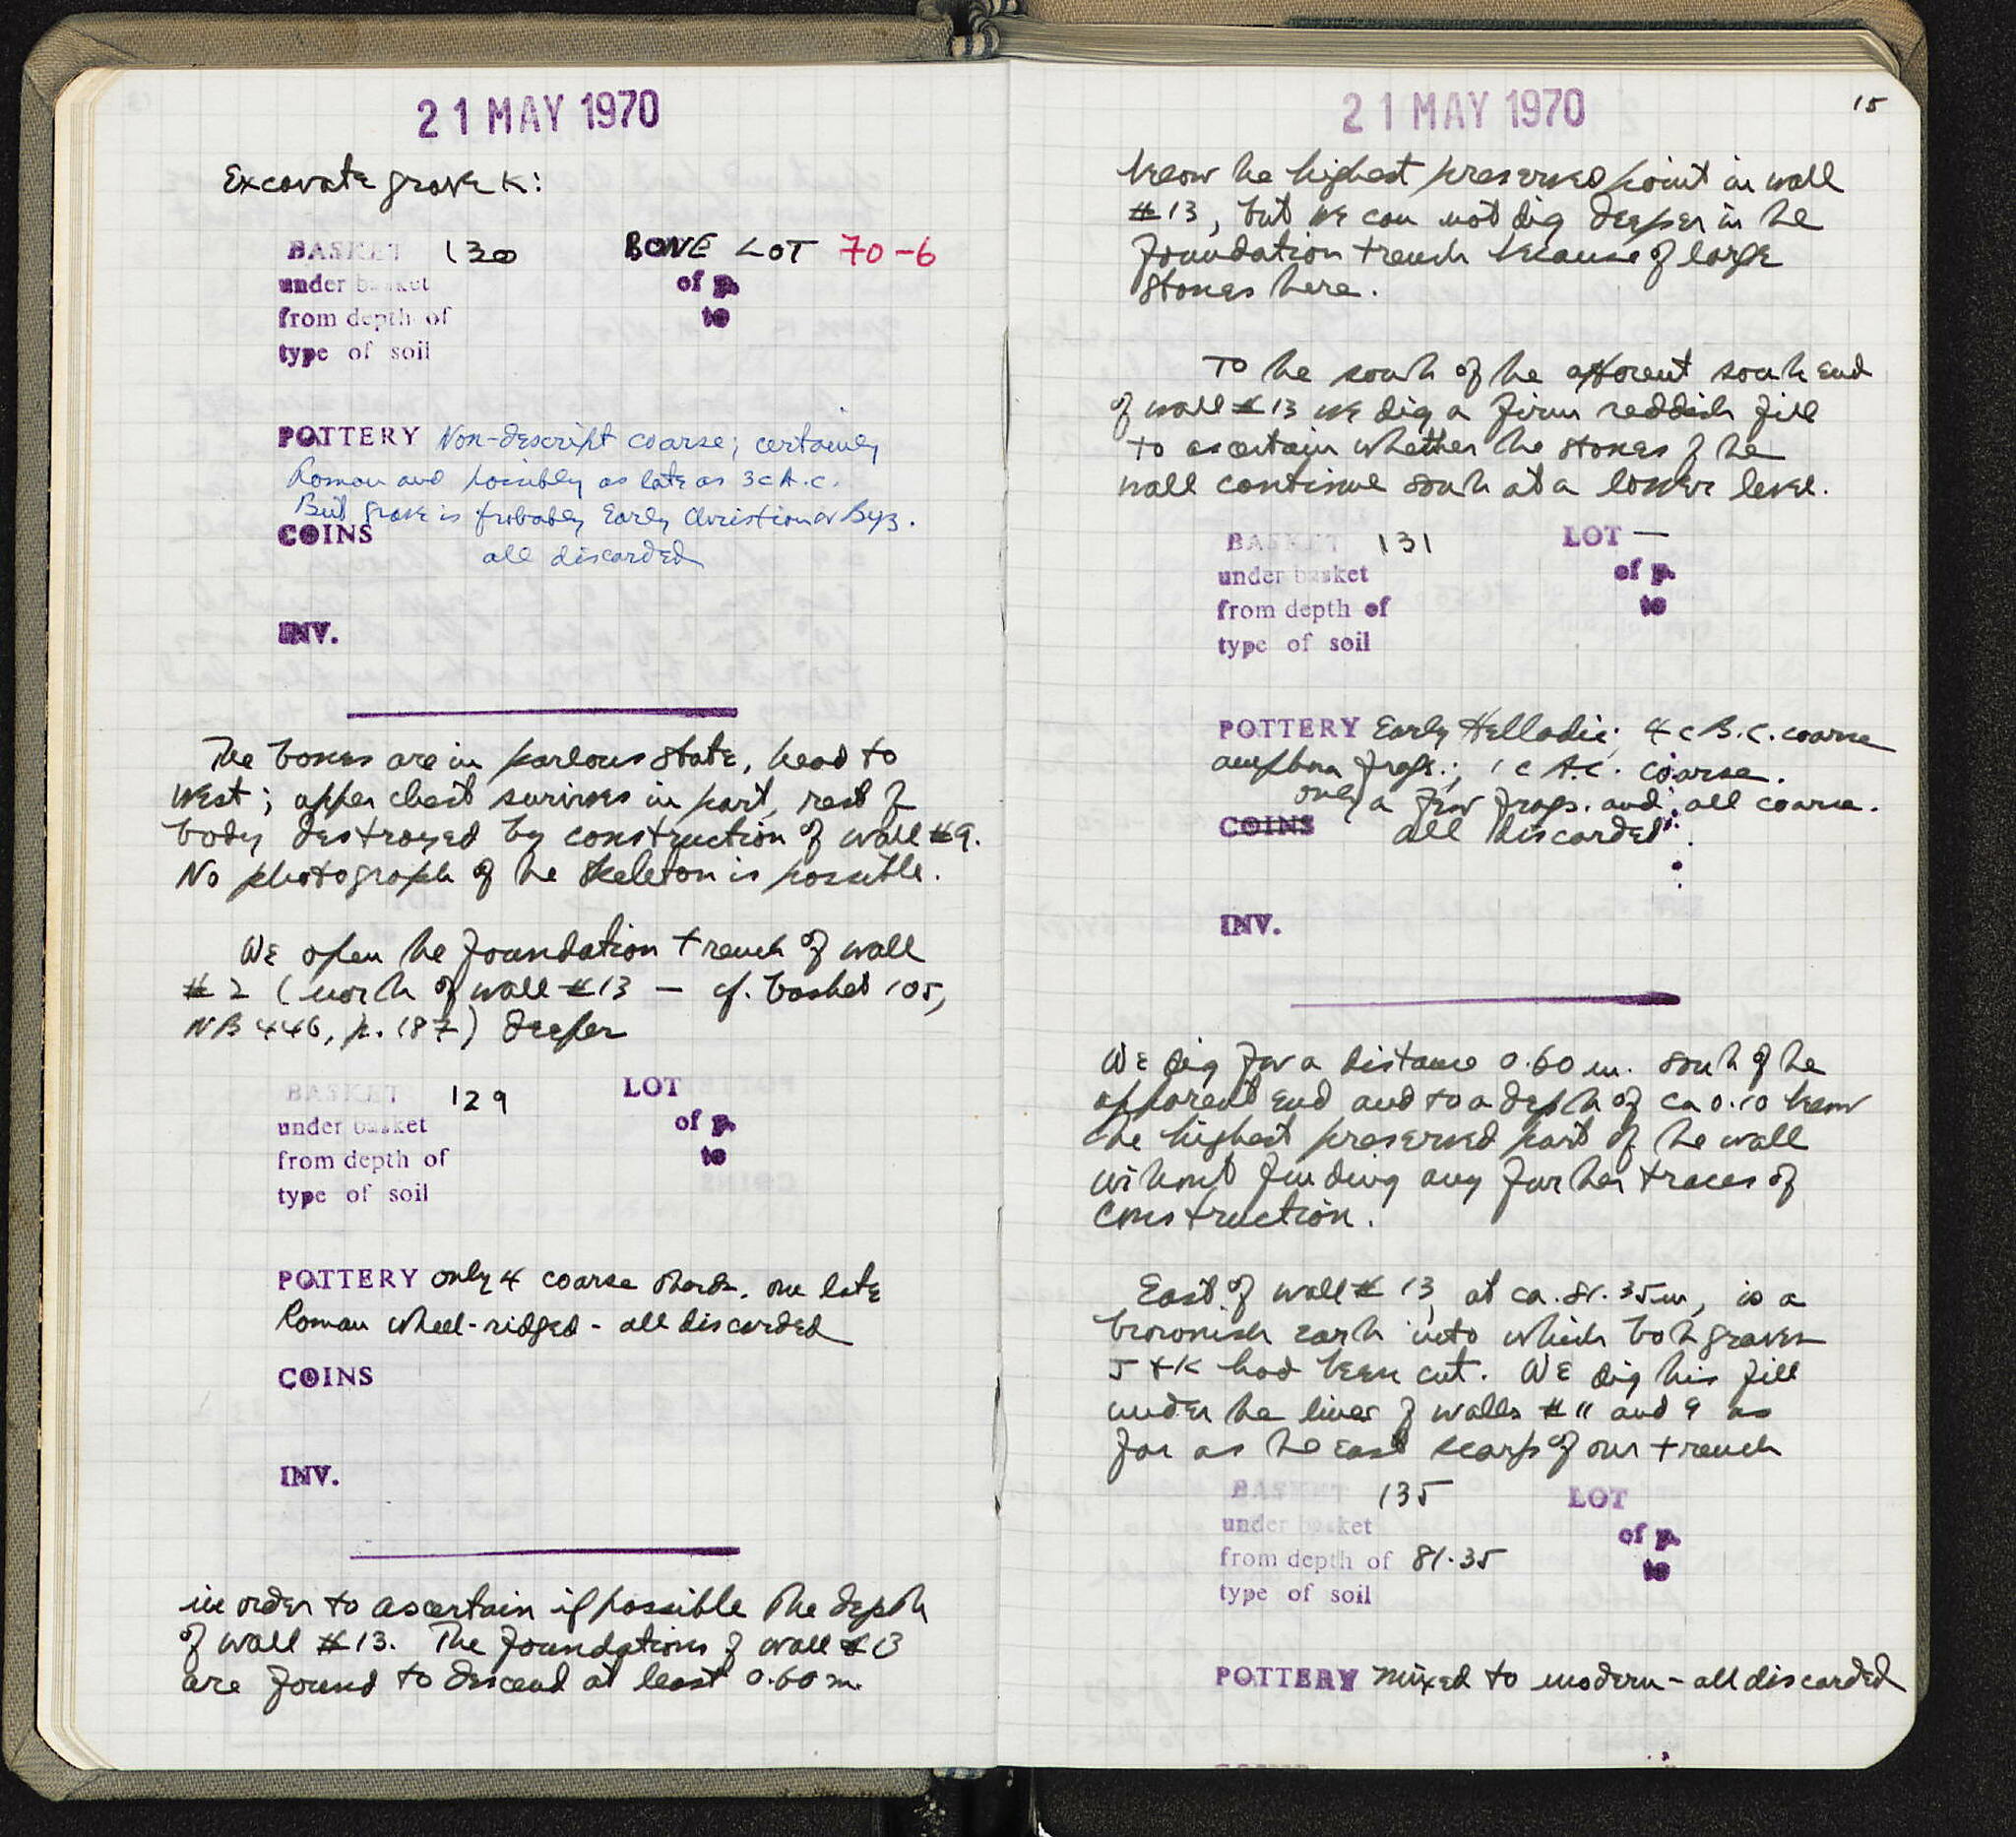 21 MAY 1970
Excavate grave K:
BASKET 130 BONE LOT 70-6
under basket of p.
from depth of to
type of soil
POTTERY Non-descript coarse; certainly
Roman and possibly as late as 3 c A.C.
But grave is probably Early Christian or Byz.
COINS
all discarded
INV.
The bones are in parlous state, head to
west; upper chest survives in part, rest of
body destroyed by construction of wall #9.
No photograph of the skeleton is possible.
We open the foundation trench of wall
#2 (north of wall #13 — cf. basket 105,
NB 446, p. 187) deeper
BASKET 129 LOT
under basket of p.
from depth of to
type of soil
POTTERY only 4 coarse sherds. one late
Roman wheel-ridged - all discarded
COINS
INV.
in order to ascertain if possible the depth
of wall #13. The foundations of wall #13
are found to descend at least 0.60 m.
21 MAY 1970
15
below the highest preserved point in wall
#13, but we can not dig deeper in the
foundation trench because of large
stones here.
To the south of the apparent south end
of wall #13 we dig a firm reddish fill
to ascertain whether the stones of the
wall continue south at a lower level.
BASKET 131 LOT —
under basket of p.
from depth of to
type of soil
POTTERY Early Helladic; 4 c B.C. coarse
amphora frags.; 1 c A.C. coarse.
only a few frags. and all coarse.
COINS all discarded.
INV.
We dig for a distance 0.60 m. south of the
apparent end and to a depth of ca 0.10 below
the highest preserved part of the wall
without finding any further traces of
construction.
East of wall #13, at ca. 81.35 m, is a
brownish earth into which both graves
J + K had been cut. We dig this fill
under the lines of walls #11 and 9 as
far as the east scarp of our trench
BASKET 135 LOT
under basket of p.
from depth of 81.35 to
type of soil
POTTERY mixed to modern - all discarded